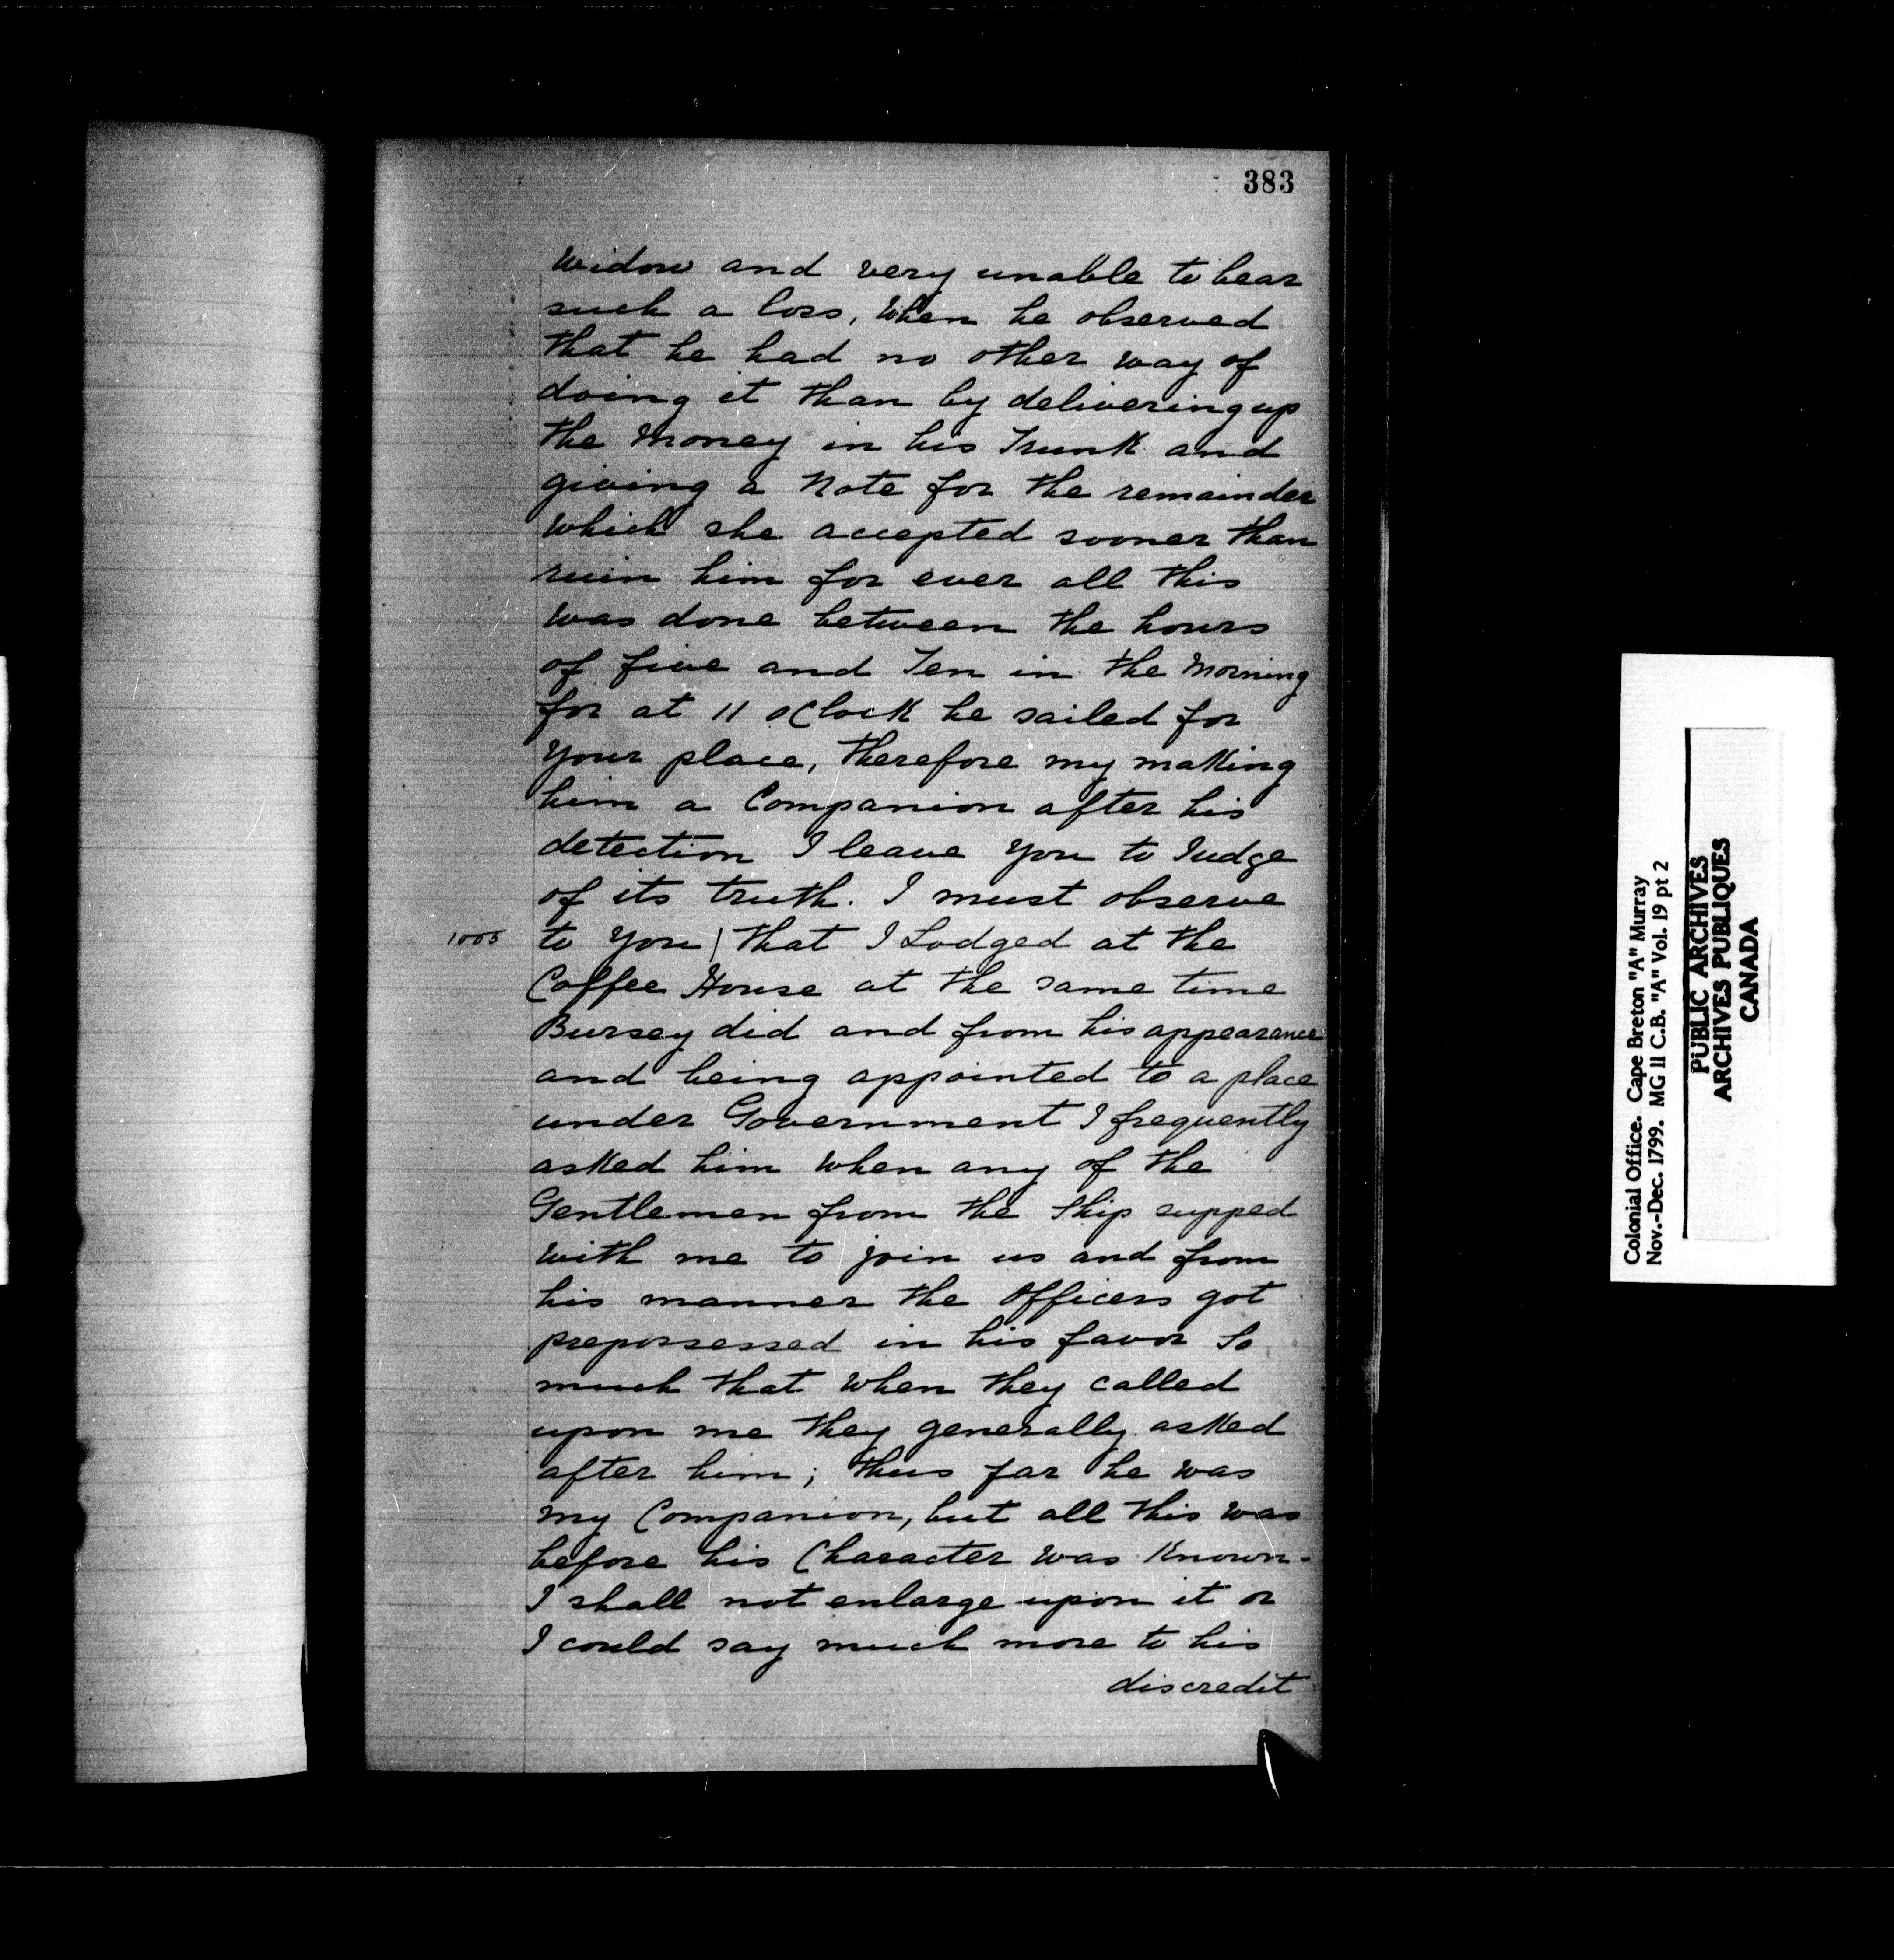 383
Widow and very unable to bear
such a loss, When he observed
that he had no other way of
doing it than by delivering up
the Money in his Trunk and
giving a Note for the remainder
Which she accepted sooner than
ruin him for ever all this
was done between the hours
of five and Ten in the Morning
for at 11 oClock he sailed for
Your place, therefore my making
him a Companion after his
detection I leave You to Judge
of its truth. I must observe
1005 to You / that I Lodged at the
Coffee House at the same time
Bursey did and from his appearance
and being appointed to a place
under Government I frequently
asked him When any of the
Gentlemen from the Ship supped
With me to join us and from
his manner the Officers got
prepossessed in his favor So
much that When they called
upon me they generally asked
after him; thus far he was
my Companion, but all this was
before his Character was Known.
I shall not enlarge upon it or
I could say much more to his
discredit
Colonial Office. Cape Breton "A" Murray
Nov.-Dec. 1799. MG 11 C.B. "A" Vol. 19 pt 2
PUBLIC ARCHIVES
ARCHIVES PUBLIQUES
CANADA